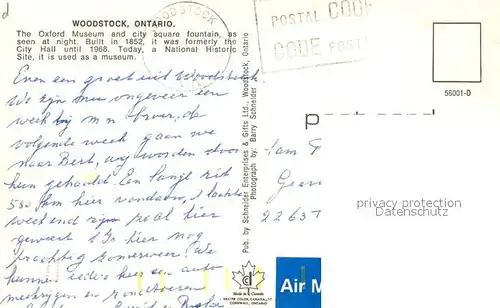 WOODSTOCK, ONTARIO.
The Oxford Museum and city square fountain, as
seen at night. Built in 1852, it was formerly the
City Hall until 1968. Today, a National Historic
Site, it is used as a museum.
WOODSTOCK
POSTAL CODE
CODE POSTAL
56001-D
Even een groet uit Woodstock
We zijn nu ongeveer een
week bij m'n broer, de
volgende week gaan we
naar Bert, wij worden door
hun gehaald. Een lange rit
550 km hier vandaan,
weekend zijn ze al hier
geweest. Is hier nog
prachtig zomerweer. We
kunnen ieder keer een auto
meekrijgen en rondtoeren
Pub. by Schneider Enterprises & Gifts Ltd., Woodstock, Ontario
Photograph by: Barry Schneider
P
Fam
2263T
privacy protection
Datenschutz
Made in Canada
CORNWALL, ONTARIO
Air M